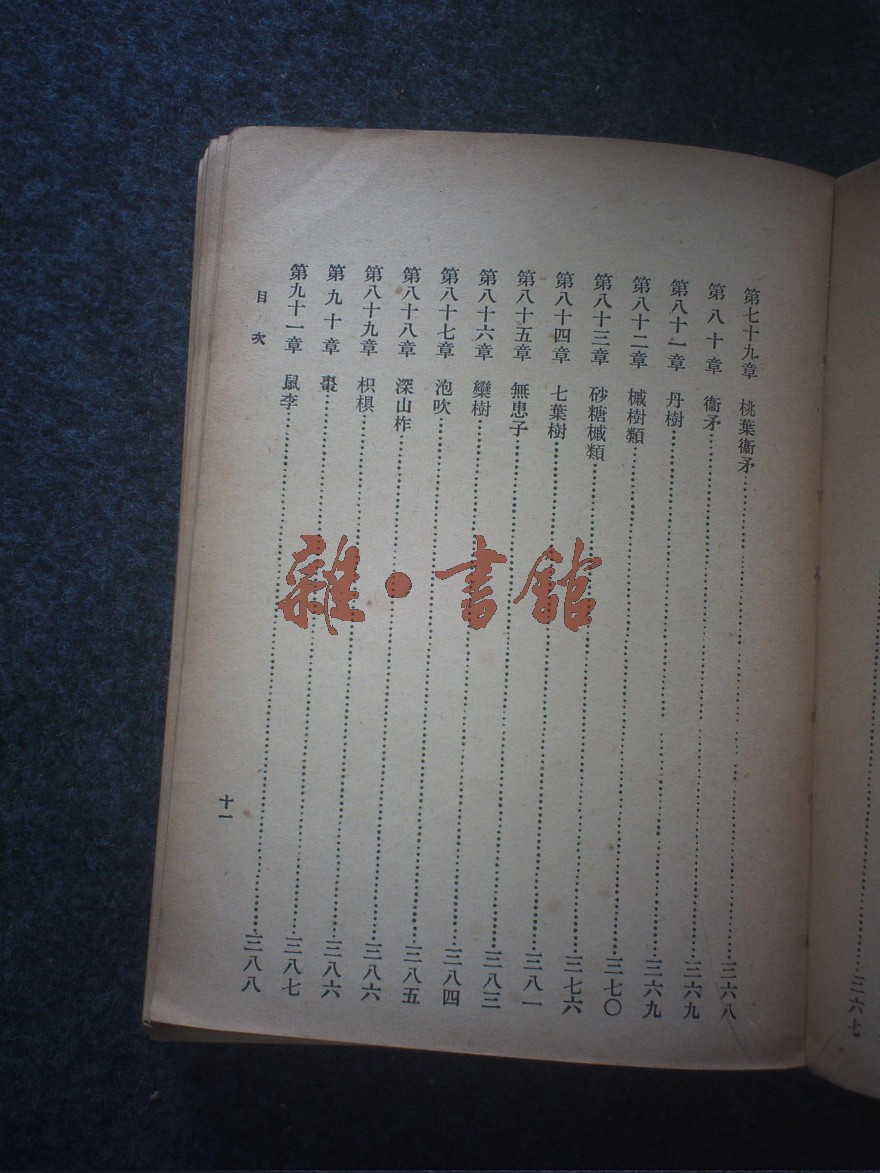 三六七
第七十九章 桃葉衞矛……三六八
第八十章 衞矛……三六九
第八十一章 丹樹……三六九
第八十二章 槭樹類……三七〇
第八十三章 砂糖槭類……三七六
第八十四章 七葉樹……三八一
第八十五章 無患子……三八三
第八十六章 欒樹……三八四
第八十七章 泡吹……三八五
第八十八章 深山柞……三八六
第八十九章 枳椇……三八六
第九十章 棗……三八七
第九十一章 鼠李……三八八
目次
十一
雜·書館